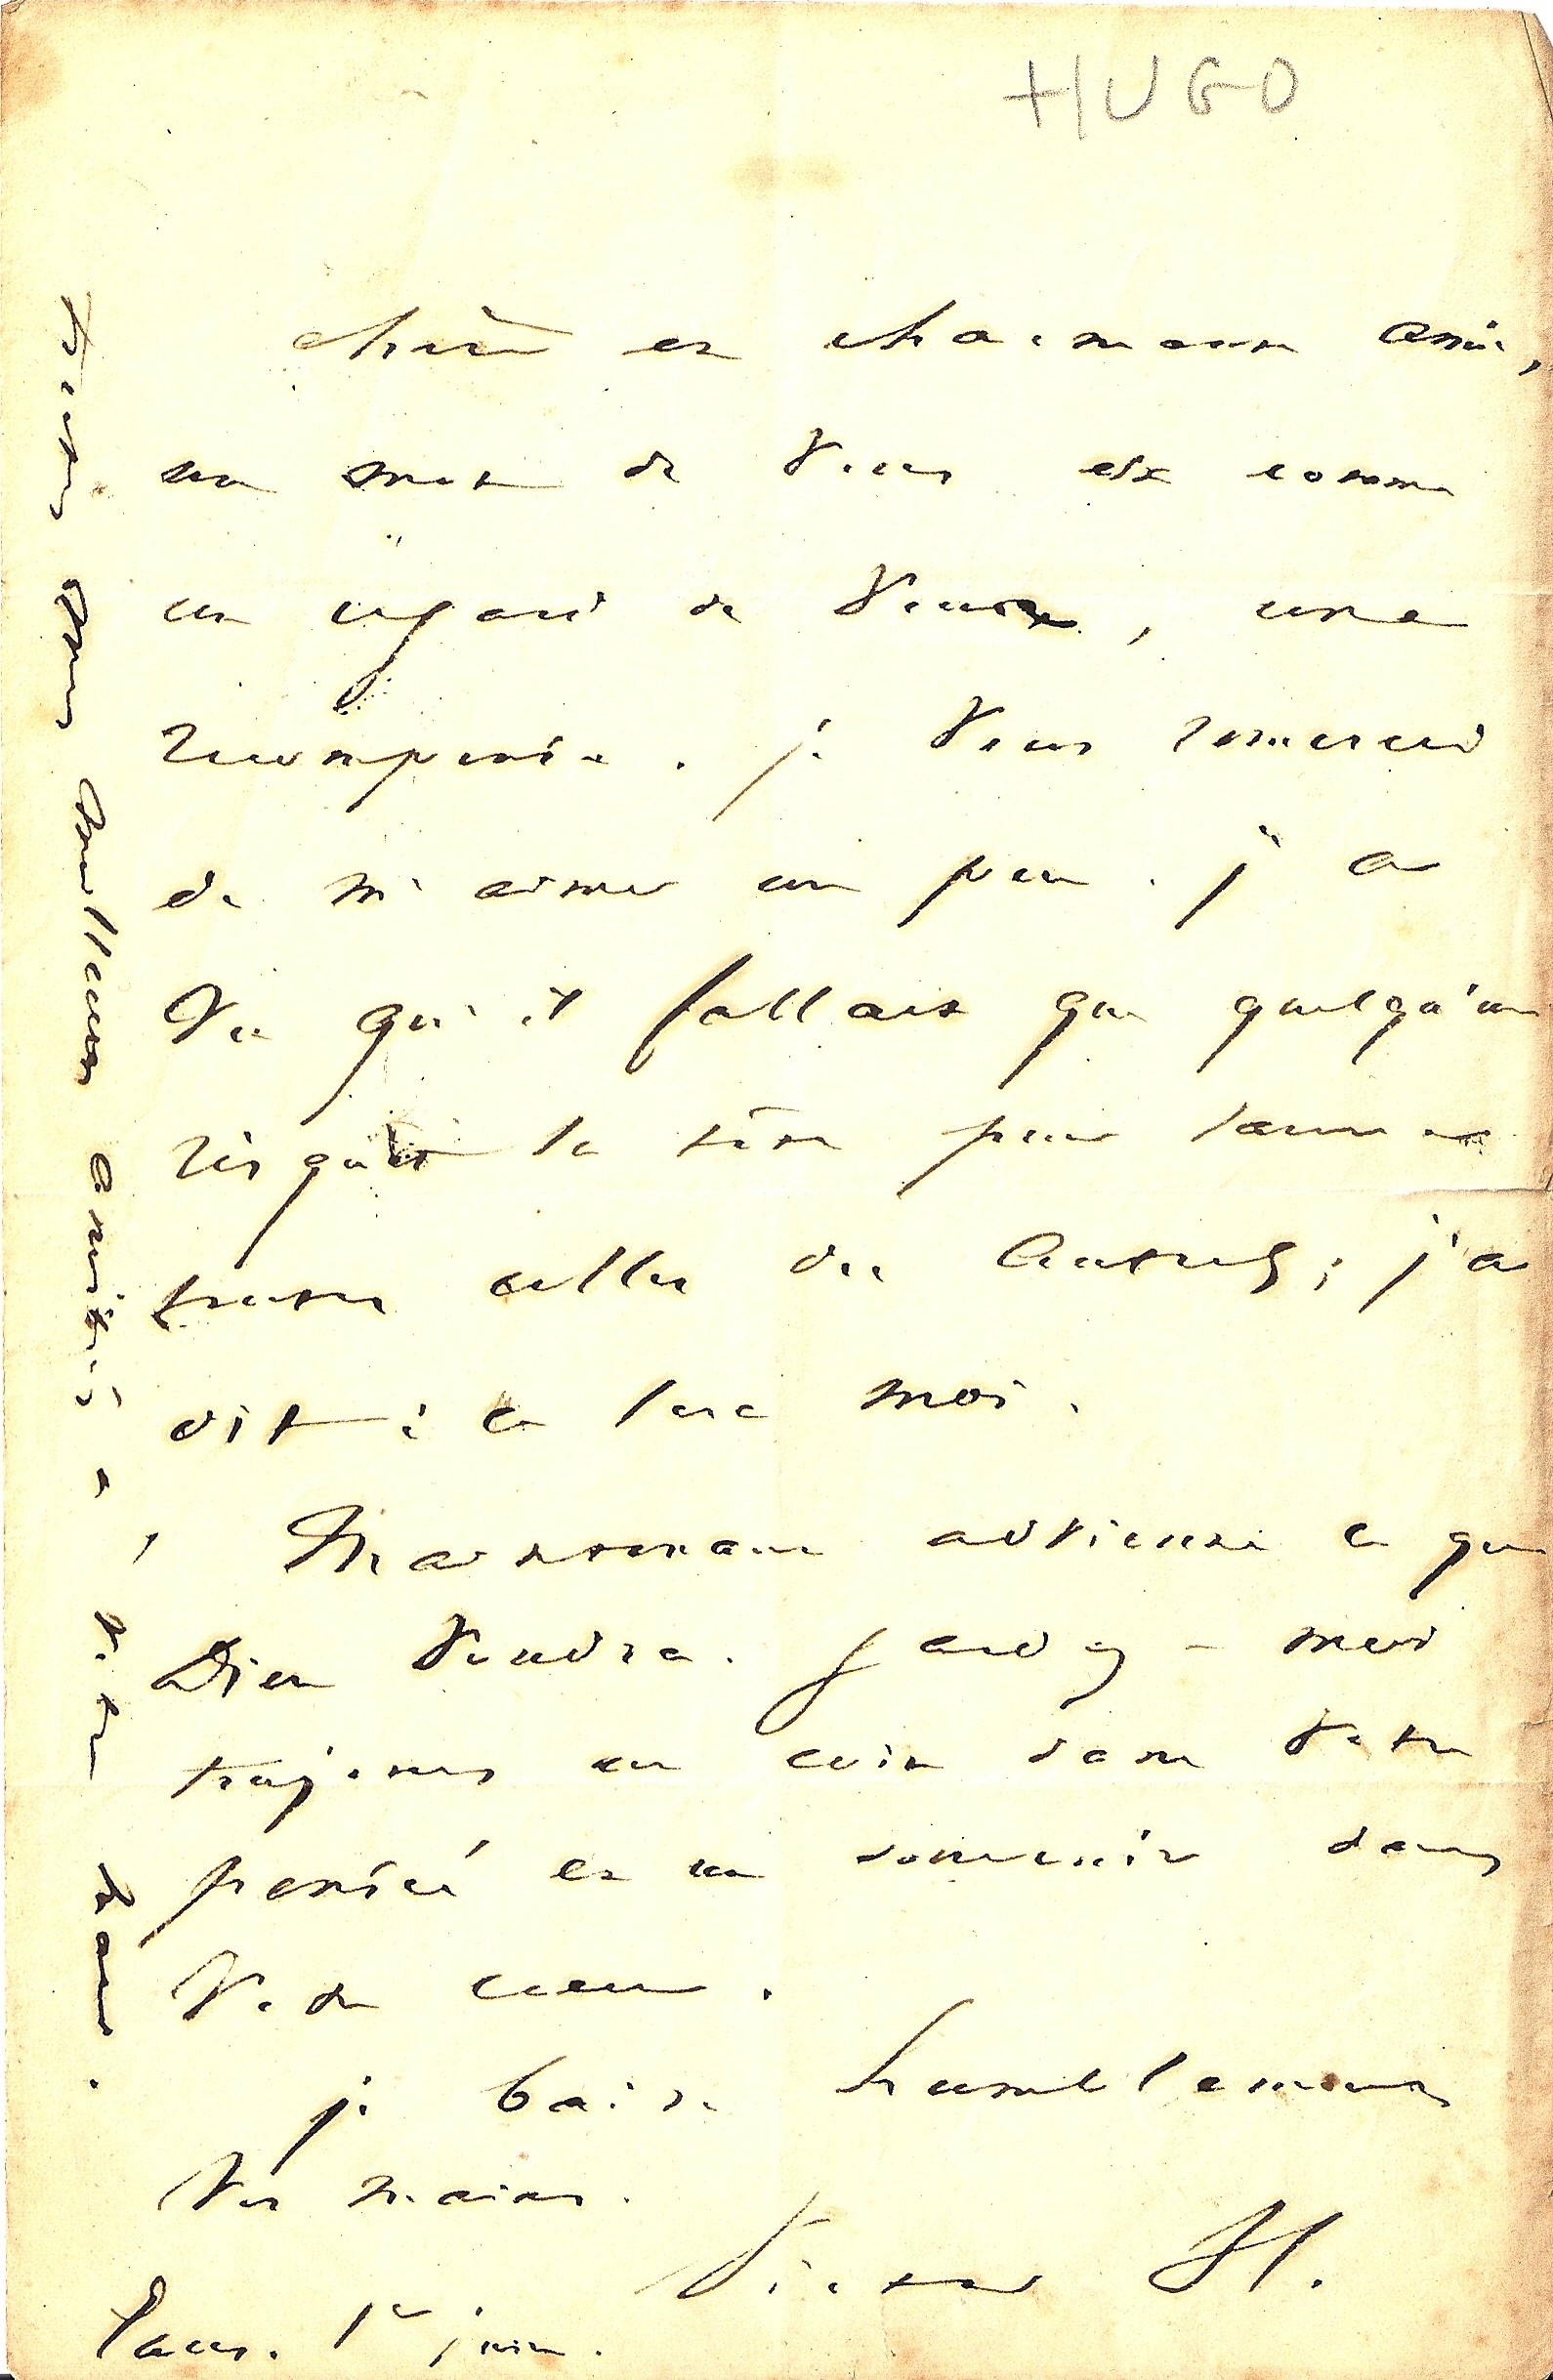 HUGO
Chère et charmante amie,
un mot de vous est comme
un regard de vous, une
récompense. je vous remercie
de m'aimer un peu. j'ai
vu qu'il fallait que quelqu'un
risquât la tête pour sauver
toutes celles des autres ; j'ai
dit : ce sera moi.
Maintenant advienne ce que
Dieu voudra. gardez-moi
toujours un coin dans votre
pensée et un souvenir dans
votre cœur.
je baise humblement
vos mains.
Victor H.
1er juin.
toutes mes meilleures amitiés à